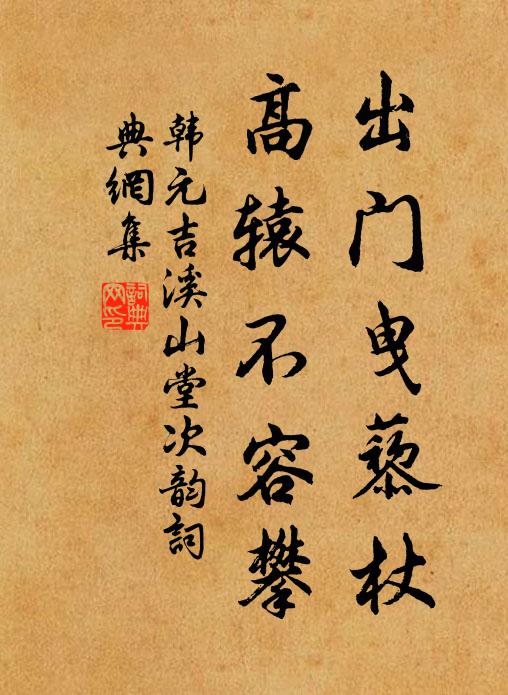 出门曳藜杖
高辕不容攀
韩元吉溪山堂次韵詞
典網集
詞典网印